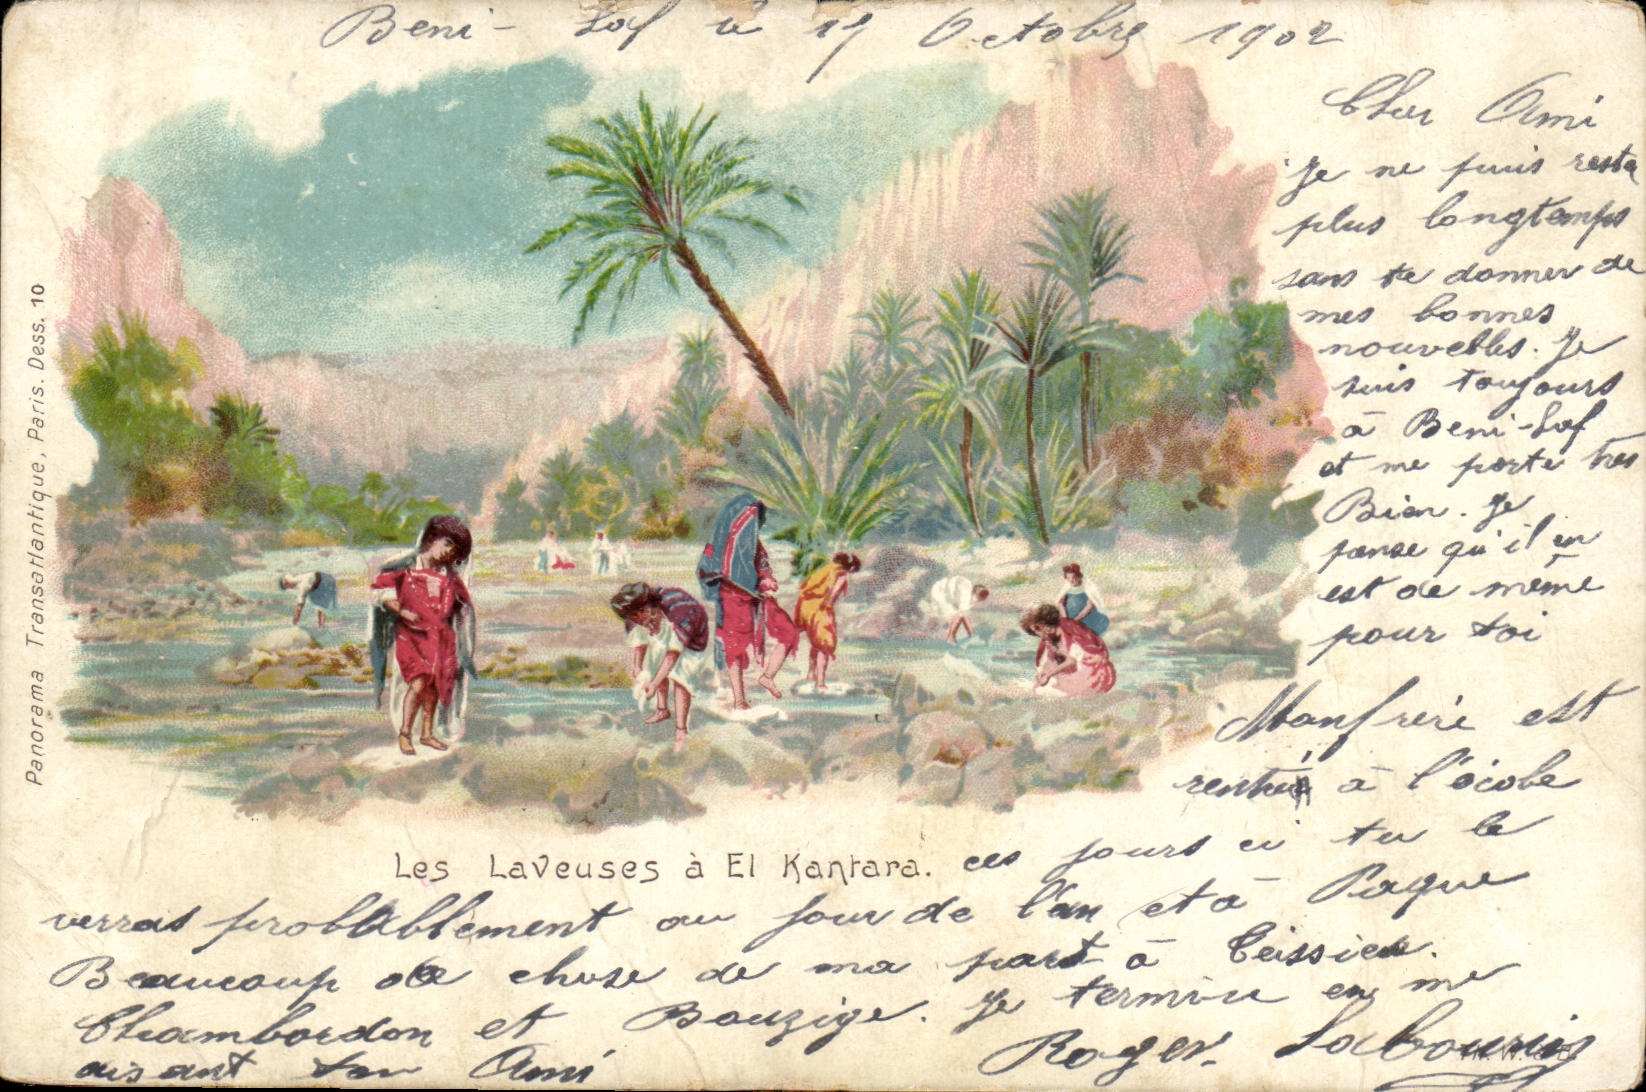 Beni-Saf le 17 Octobre 1902
Cher Ami
Je ne puis resté
plus longtemps
sans te donner de
mes bonnes
nouvelles. Je
suis toujours
à Beni-Saf
et me porte très
Bien. Je
pense qu'il en
est de même
pour toi
Monfrère est
rentré à l'écobe
ces jours ci tu le
verras probablement au jour de l'an et à Paque
Beaucoup de chose de ma part à Teissier.
Chambordon et Bouzige. Je termine en me
disant ton Ami Roger Labourin
Les Laveuses à El Kantara.
Panorama Transatlantique, Paris. Dess. 10